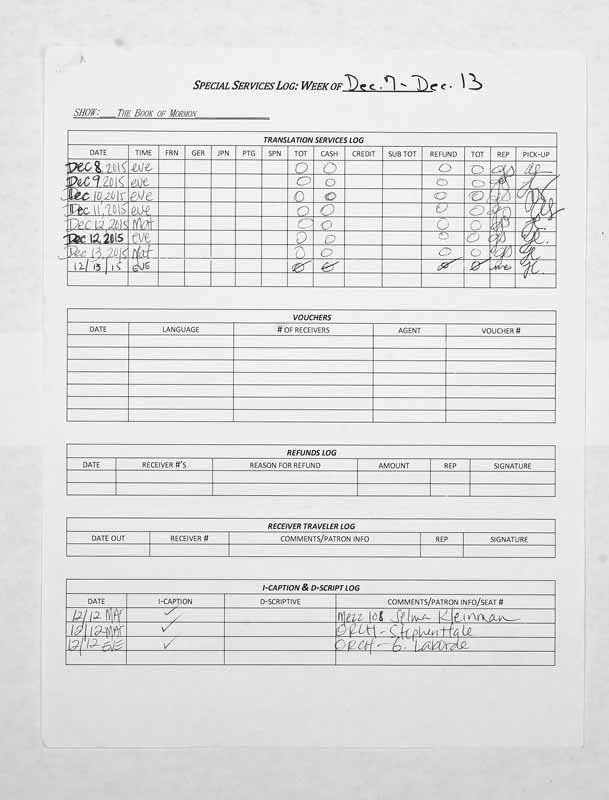 SPECIAL SERVICES LOG: WEEK OF Dec. 7 - Dec. 13
SHOW: THE BOOK OF MORMON
TRANSLATION SERVICES LOG
DATE TIME FRN GER JPN PTG SPN TOT CASH CREDIT SUB TOT REFUND TOT REP PICK-UP
Dec 8, 2015 eve 0 0 0 0
Dec 9, 2015 eve 0 0 0 0
Dec 10, 2015 eve 0 0 0 0
Dec 11, 2015 eve 0 0 0 0
Dec 12, 2015 Mat 0 0 0 0
Dec 12, 2015 eve 0 0 0 0
Dec 13, 2015 Mat 0 0 0 0
12/13/15 EVE 0 0 0 0
VOUCHERS
DATE LANGUAGE # OF RECEIVERS AGENT VOUCHER #
REFUNDS LOG
DATE RECEIVER #'S REASON FOR REFUND AMOUNT REP SIGNATURE
RECEIVER TRAVELER LOG
DATE OUT RECEIVER # COMMENTS/PATRON INFO REP SIGNATURE
I-CAPTION & D-SCRIPT LOG
DATE I-CAPTION D-SCRIPTIVE COMMENTS/PATRON INFO/SEAT #
12/12 MAT ✓ Mezz 108 Selma Kleinman
12/12 MAT ✓ ORCH - Stephen Hale
12/12 EVE ✓ ORCH - G. Laborde